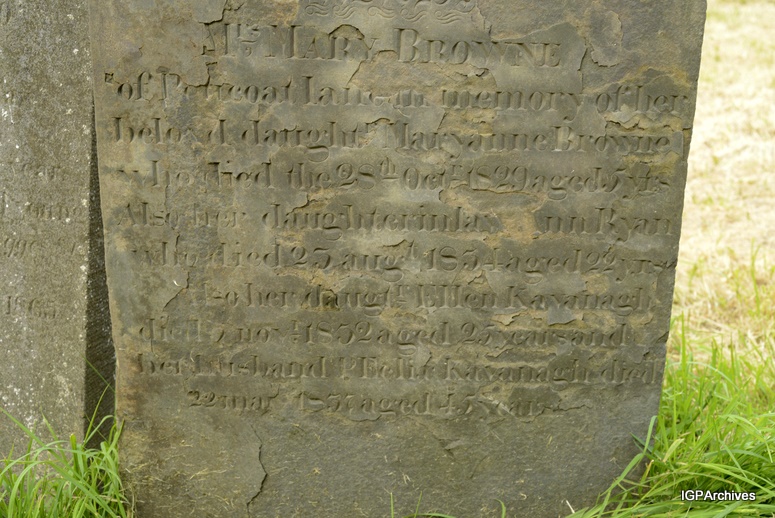 Mrs MARY BROWNE
of Petticoat lane in memory of her
belovd daught'r Maryanne Browne
who died the 28th Octr 1829 aged 5 yrs
Also her daughter in law Ann Ryan
who died 25 augst 1834 aged 22 yrs
Also her daugtr Ellen Kavanagh
died novr 1832 aged 25 years and
her husband Felix Kavanagh died
22 mar aged 45 years
IGPArchives